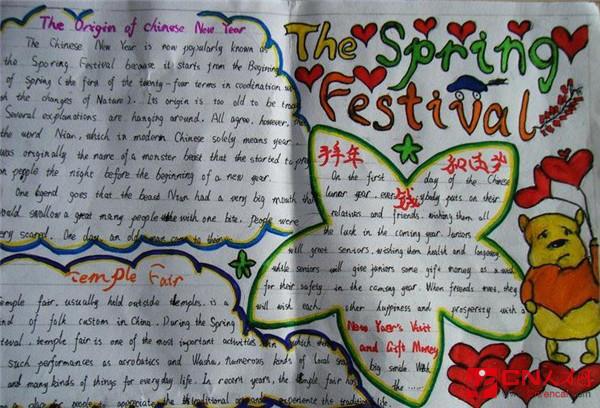 The Origin of Chinese New Year
The Chinese New Year is now popularly known as
the Sporing Festival because it starts from the Begining
of Spring (the first of the twenty-four terms in coodination with
the changes of Nature). Its origin is too old to be
Several explanations are hanging around. All agree, however, that
the word Nian, which in modern Chinese solely means year
was originally the name of a monster beast that the started to
on people the night before the beginning of a new year.
One legend goes that the beast Nian had a very big mouth that
would swallow a great many people with one bite. People were
very scared. One day, an old
The Spring
Festival
拜年
On the first day of the Chinese
lunar year, everybody puts on their
relatives and friends, wishing them all
the luck in the coming year. Juniors
will greet seniors, wishing them health and longevity
while seniors will give juniors some gift money as a wish
for their safety in the coming year. When friends meet, they
will wish each other happiness and prosperity with a
big smile. With
the
New Year's Visit
and Gift Money
Temple Fair
temple fair, usually held outside temples, is a
kind of folk custom in China. During the Spring
temple fair is one of the most important activities in which
such performances as acrobatics and Wushu, numerous kinds of local
and many kinds of things for everyday life. In recent years, the temple fair has
people appreciate the traditional experience the traditional life
CN人才网